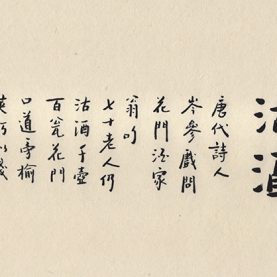 唐代詩人
岑參戲問
花門酒家
翁
七十老人仍
沽酒千壺
百瓮花門
口道旁榆